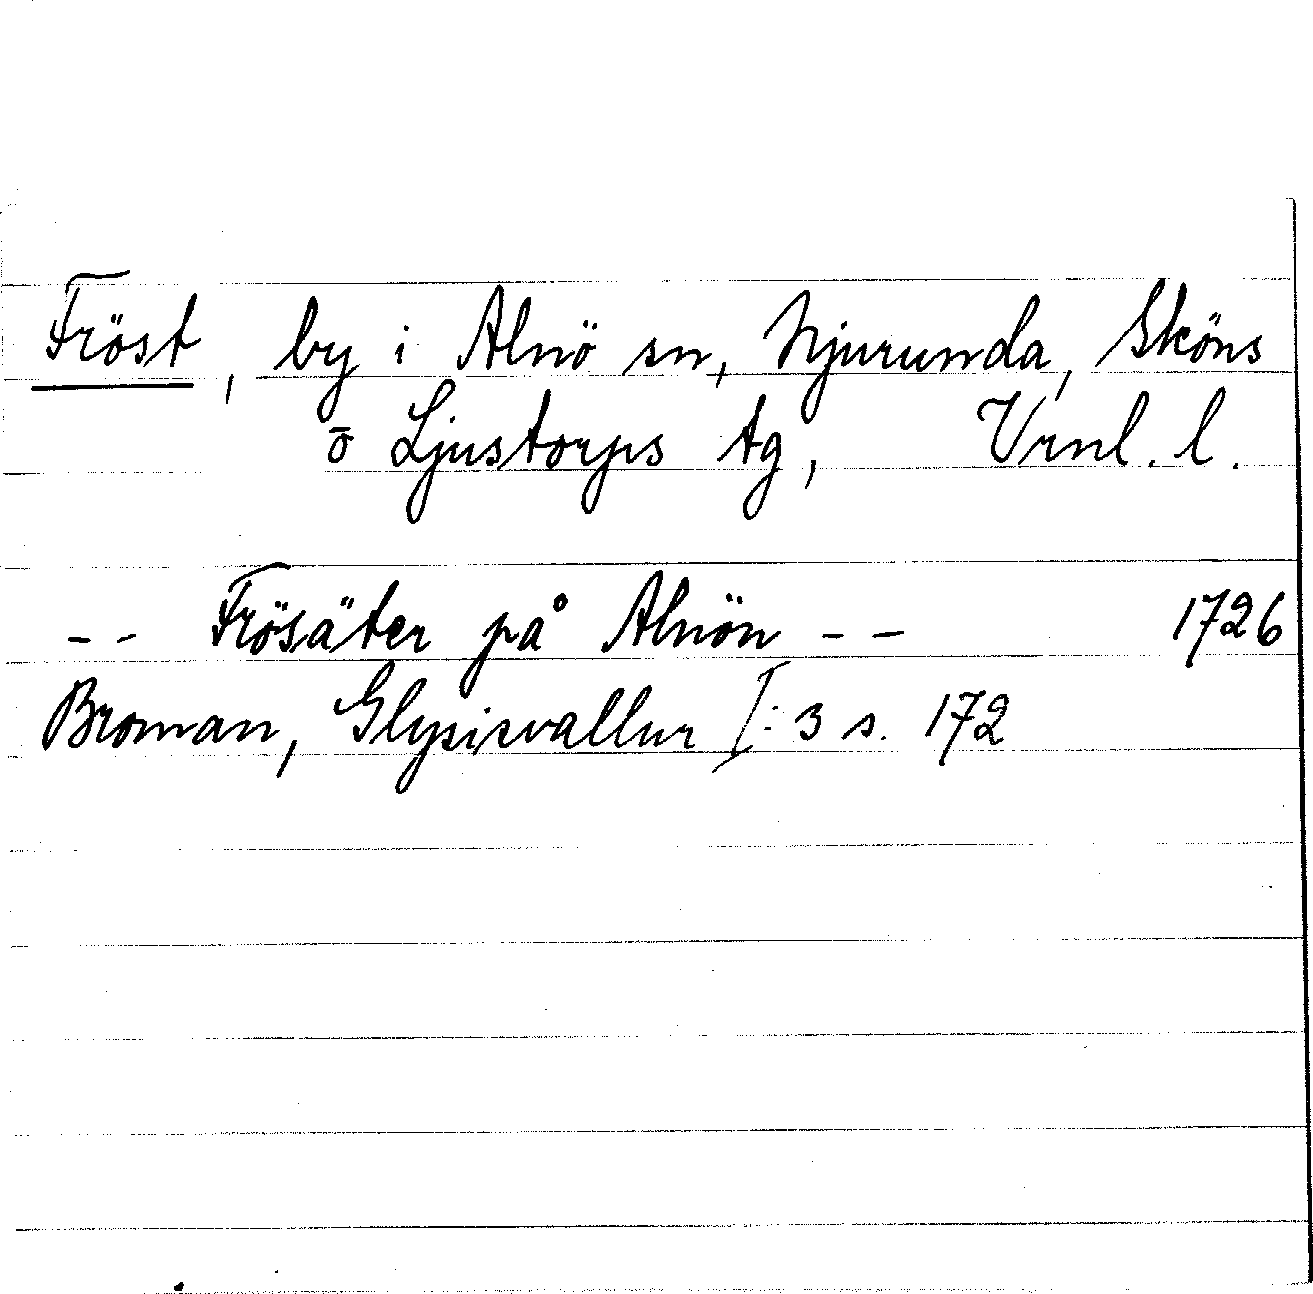 Fröst, by i Alnö sn, Njurunda, Sköns
ō Ljustorps tg, Vrml. l.
-- Frösäter på Alnön -- 1726
Broman, Glysisvallur I:3 s. 172